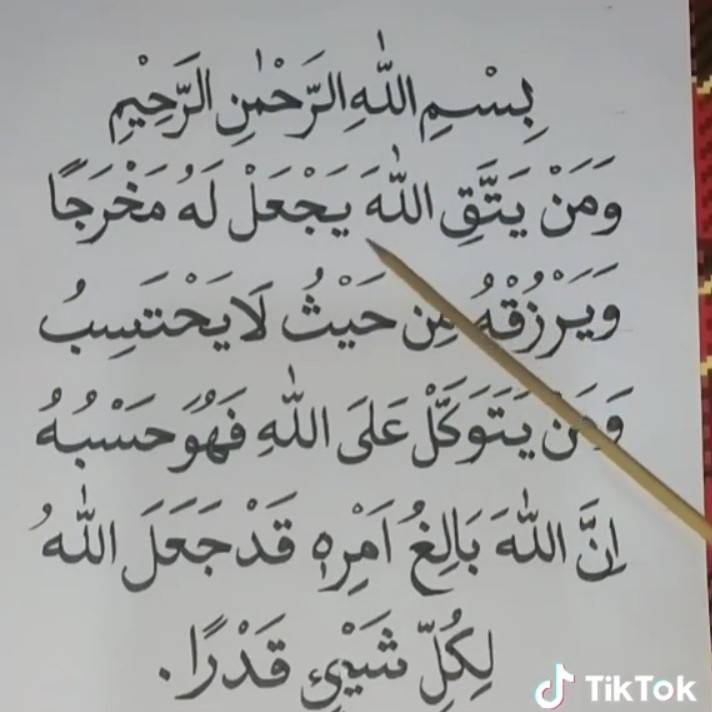 بِسْمِ اللّٰهِ الرَّحْمٰنِ الرَّحِيْمِ
وَمَنْ يَتَّقِ اللّٰهَ يَجْعَلْ لَهُ مَخْرَجًا
وَيَرْزُقْهُ مِن حَيْثُ لَا يَحْتَسِبُ
وَمَنْ يَتَوَكَّلْ عَلَى اللّٰهِ فَهُوَ حَسْبُهُ
اِنَّ اللّٰهَ بَالِغُ اَمْرِهٖ قَدْ جَعَلَ اللّٰهُ
لِكُلِّ شَيْئٍ قَدْرًا.
TikTok